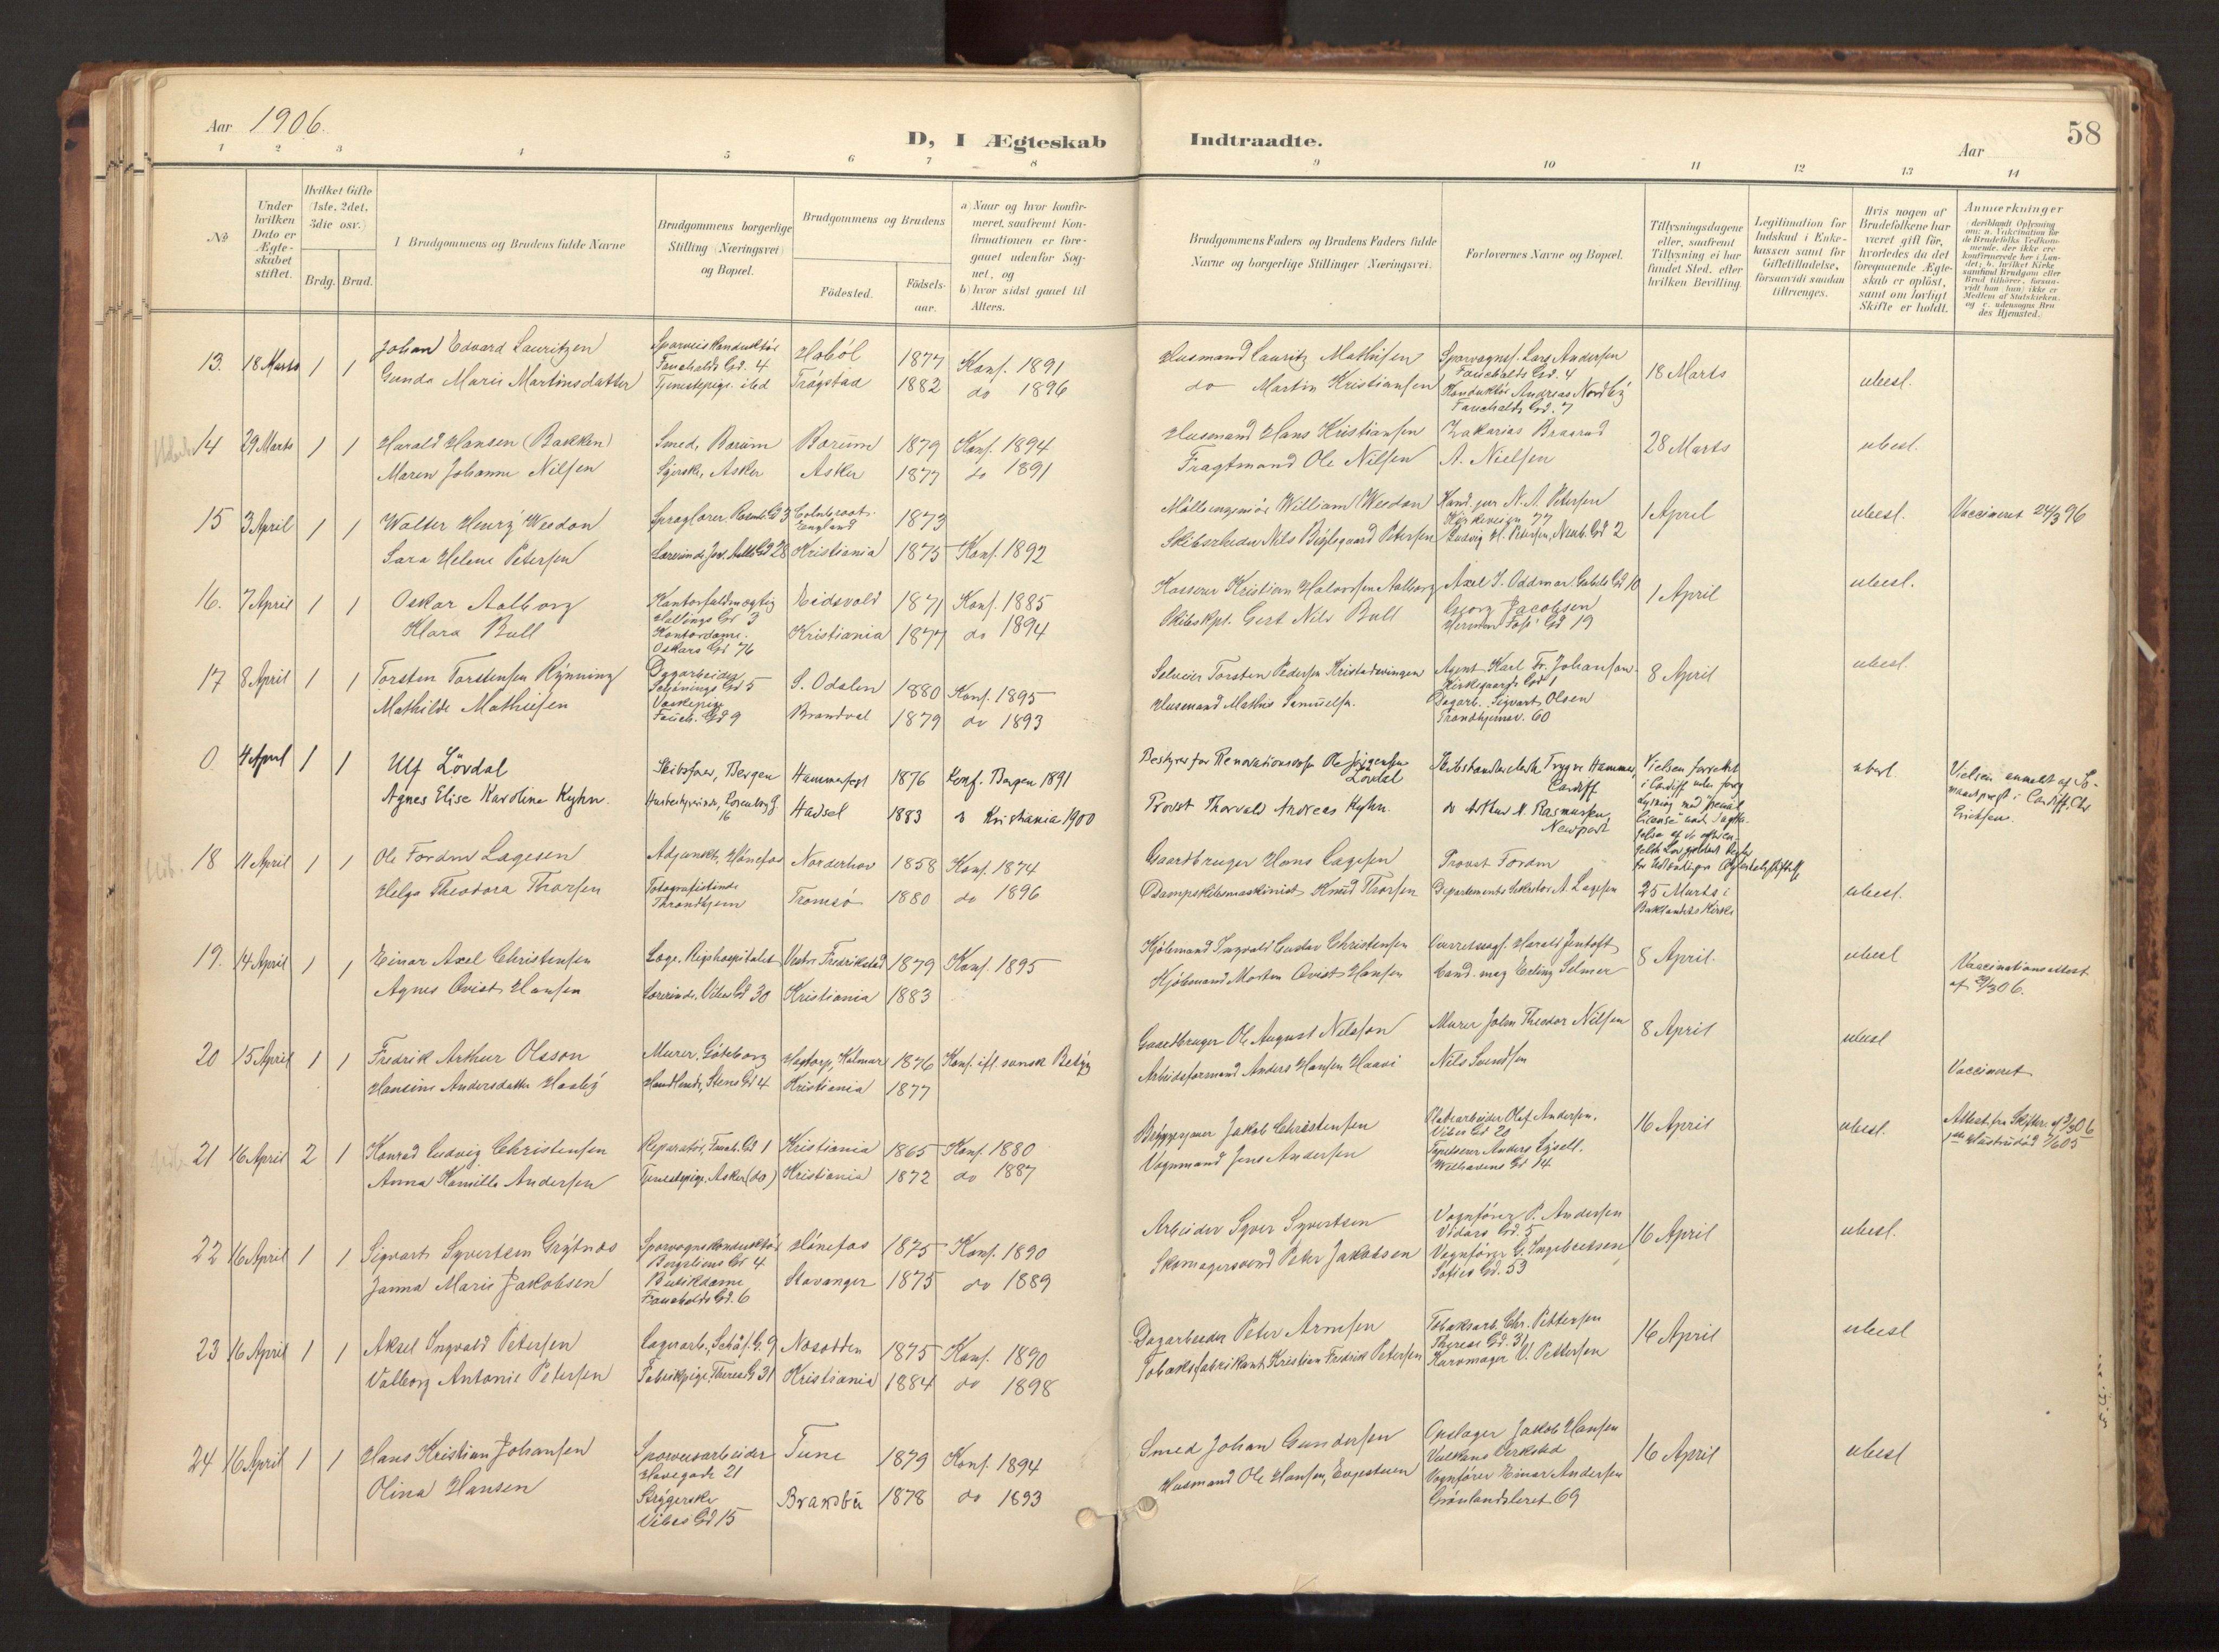 Aar 1906.
D, I Ægteskab Indtraadte.
Aar
58
1 2 3 4 5 6 7 8 9 10 11 12 13 14
№
Under hvilken Dato er Ægteskabet stiftet.
Hvilket Gifte (1ste, 2det, 3die osv.)
Brdg. Brud.
Brudgommens og Brudens fulde Navne
Brudgommens borgerlige Stilling (Næringsvei) og Bopæl.
Brudgommens og Brudens
Födested.
Födsels-aar.
a) Naar og hvor konfirmeret, saafremt Konfirmationen er foregaaet udenfor Sognet, og
b) hvor sidst gaaet til Alters.
Brudgommens Faders og Brudens Faders fulde Navne og borgerlige Stillinger (Næringsvei).
Forlovernes Navne og Bopæl.
Tillysningsdagene eller, saafremt Tillysning ei har fundet Sted, efter hvilken Bevilling.
Legitimation for Indskud i Enkekassen samt for Giftetilladelse, forsaavidt saadan tiltrænges.
Hvis nogen af Brudefolkene har været gift för, hvorledes da det foregaaende Ægteskab er oplöst, samt om lovligt Skifte er holdt.
Anmærkninger
13. 18 Marts 1 1 Johan Edvard Lauritzen Sporveiskonduktör Fauchalds Gd. 4 Haböl 1877 Konf. 1891 Husmand Lauritz Mathisen Sporvognsf. Lars Andersen Fauchalds Gd. 4 18 Marts ubesl.
Gunda Marie Martinsdatter Tjenestepige. ibd Trögstad 1882 do 1896 do Martin Kristiansen Konduktör Andreas Nordby Fauchalds Gd. 7
14 29 Marts 1 1 Harald Hansen (Bakken) Smed, Bærum Bærum 1879 Konf. 1894 Husmand Hans Kristiansen Zakarias Braarud 28 Marts ubesl.
Maren Johanne Nilsen Syerske, Asker Asker 1877 do 1891 Fragtmand Ole Nilsen A. Nielsen
15 3 April 1 1 Walter Henry Weedon England 1873 Mölleingeniör William Weedon Kand. jur N. A. Petersen Kirkeveien 77 1 April ubesl. Vaccineret 24/3 96
Sara Helene Petersen Kristiania 1875 Konf. 1892 Skibsrheder Nils Petersen Ludvig H. Petersen, Neub. Gd 2
16. 7 April 1 1 Oskar Aalborg Kontorfuldmægtig Hallings Gd 3 Eidsvold 1871 Konf. 1885 Kasserer Kristian Halvorsen Aalborg Axel J. Oddmar Gabels Gd 10 1 April ubesl.
Klara Bull Kontordame. Oskars Gd 76 Kristiania 1877 do 1894 Skibskpt. Gert Nils Bull Georg Jacobsen Herman Foss' Gd 19
17 8 April 1 1 Torsten Torstensen Rynning Dagarbeider Schönings Gd 5 S. Odalen 1880 Konf. 1895 Selveier Torsten Pedersen Agent Karl Fr. Johansen Kirkegaards Gd 1 8 April ubesl.
Mathilde Mathisen Vaskepige Fauch. Gd 9 Brandval 1879 do 1893 Husmand Mathis Samuelsen. Dagarb. Sigvart Olsen Trondhjemsv. 60
0. 4 April 1 1 Ulf Lövdal Skibsförer, Bergen Hammerfest 1876 Konf. Bergen 1891 Bestyrer for Renovationsvæsn Ole Jörgensen Lövdal Trygve Hammer, Cardiff ubesl.
Agnes Elise Karoline Kyhn. Husbestyrerinde, Rosenborg G. 16 Hadsel 1883 Kristiania 1900 Provst Thorvald Andreas Kyhn. do Arthur N. Rasmussen, Newport
Vielsen anmeldt af Sömandsprest i Cardiff Chr. Erichsen.
18 11 April 1 1 Ole Fordm Lagesen Adjunkt, Hönefos Norderhov 1858 Konf. 1874 Gaardbruger Hans Lagesen Provst Fordm
Helga Theodora Thorsen Fotografistinde Throndhjem Tromsö 1880 do 1896 Dampskibsmaskinist Knud Thorsen Departements Sekretær A Lagesen 25 Marts i Baklandets Kirke ubesl.
19. 14 April 1 1 Einar Axel Christensen Læge. Rigshospitalet Vestre Fredrikstad 1879 Konf. 1895 Kjöbmand Ingvald Gustav Christensen Overretssagf. Harald Jentoft 8 April. ubesl
Agnes Qvist Hansen Lærerinde, Vibes Gd 30 Kristiania 1883 Kjöbmand Morten Qvist Hansen Cand. mag Erling Selmer Vaccinationsattest
20 15 April 1 1 Fredrik Arthur Olsson Murer, Göteborg Kalmar 1876 Konf. ifl. svensk Bevis Gaardbruger Ole August Nilsson Murer John Theodor Nilsen 8 April ubesl
Hansine Andersdatter Haaby Stens Gd 4 Kristiania 1877 Arbeidsformand Anders Hansen Haavi Nils Svendsen Vaccineret
21 16 April 2 1 Konrad Ludvig Christensen Reparatör, Fauch. Gd 1 Kristiania 1865 Konf 1880 Jakob Christensen Olaf Andersen. Vibes Gd 20 16 April ubesl.
Anna Kamilla Andersen Tjenestepige, Asker (do) Kristiania 1872 do 1887 Vognmand Jens Andersen Anders Welhavens Gd 14
22 16 April 1 1 Sigvart Syvertsen Grytnes Sporvognskonduktör Bergliens Gd 4 Hönefos 1875 Konf. 1890 Arbeider Syver Syvertsen Vognförer P. Andersen Vidars Gd. 5 16 April ubesl.
Janna Marie Jakobsen Butikdame Fauchalds Gd. 6 Stavanger 1875 do 1889 Skomagersvend Peter Jakobsen Vognförer G. Ingebretsen Sofies Gd. 53
23 16 April 1 1 Aksel Ingvald Petersen Lagerarb., Schäf. G. 9 Nesodden 1875 Konf. 1890 Dagarbeider Peter Arnesen Tobaksarb. Chr. Pettersen Thereses Gd. 31 16 April ubesl
Valborg Antonie Petersen Fabrikpige, Theres G 31 Kristiania 1884 do 1898 Tobaksfabrikant Kristian Fredrik Petersen Kurvmager V. Pettersen
24 16 April 1 1 Hans Kristian Johansen Sporveisarbeider Havegade 21 Tune 1879 Konf. 1894 Smed Johan Gundersen Opslager Jakob Hansen Vulkans Verksted 16 April ubesl
Olina Hansen Strygerske Vibes Gd 15 Brandbu 1878 do 1893 Husmand Ole Hansen, Vognförer Einar Andersen Grönlandsleret 69